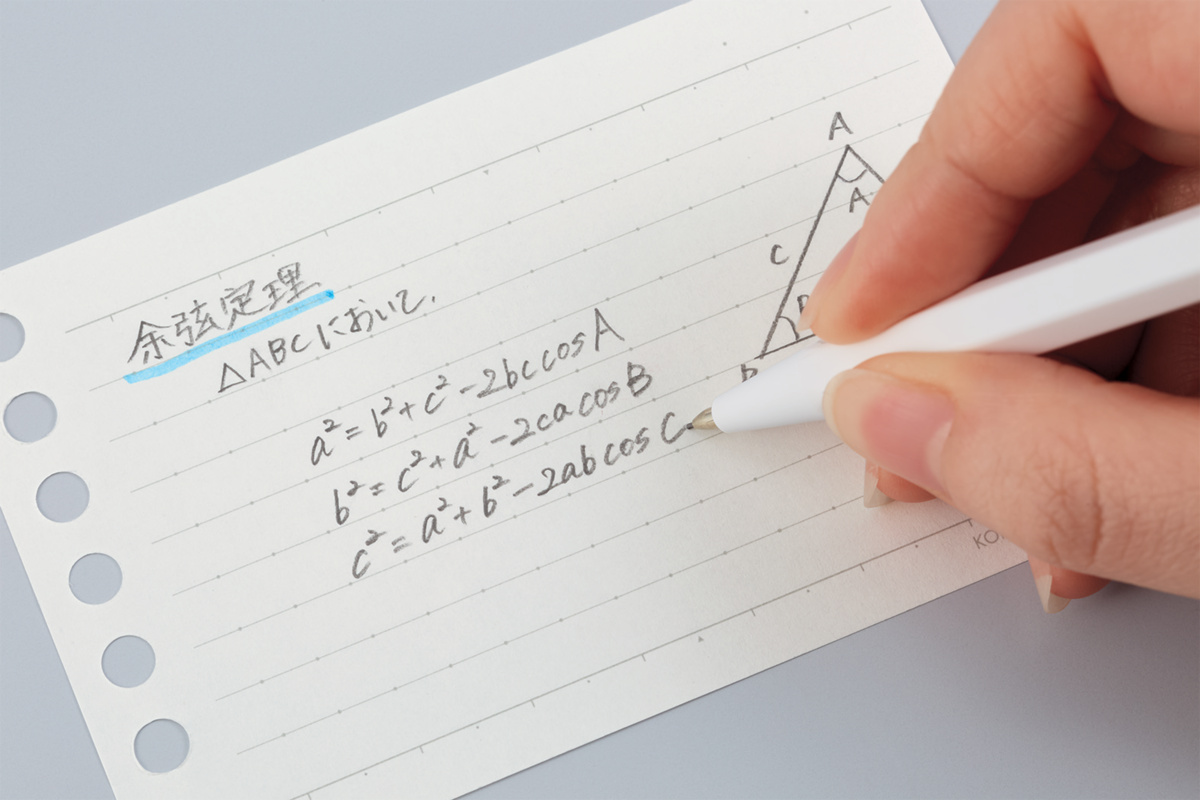 余弦定理
△ABCにおいて,
a² = b² + c² - 2bc cos A
b² = c² + a² - 2ca cos B
c² = a² + b² - 2ab cos C
A
A
c
B
B